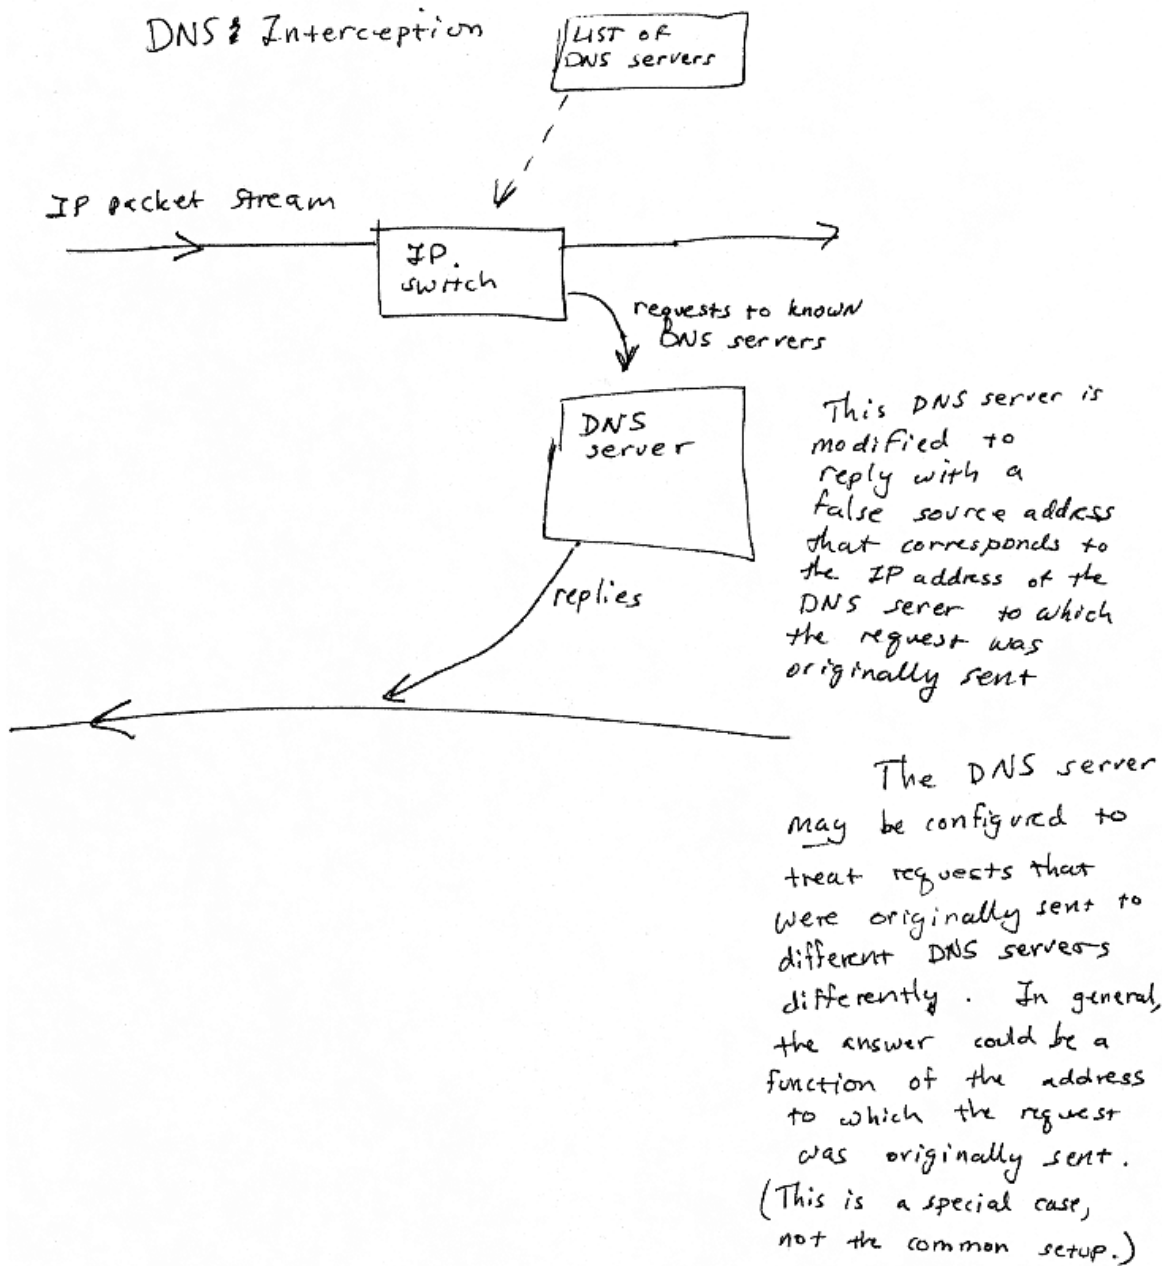 DNS: Interception
LIST OF
DNS servers
IP packet stream
IP.
switch
requests to known
DNS servers
DNS
server
replies
This DNS server is
modified to
reply with a
false source address
that corresponds to
the IP address of the
DNS serer to which
the request was
originally sent
The DNS server
may be configured to
treat requests that
were originally sent to
different DNS servers
differently. In general,
the answer could be a
function of the address
to which the request
was originally sent.
(This is a special case,
not the common setup.)